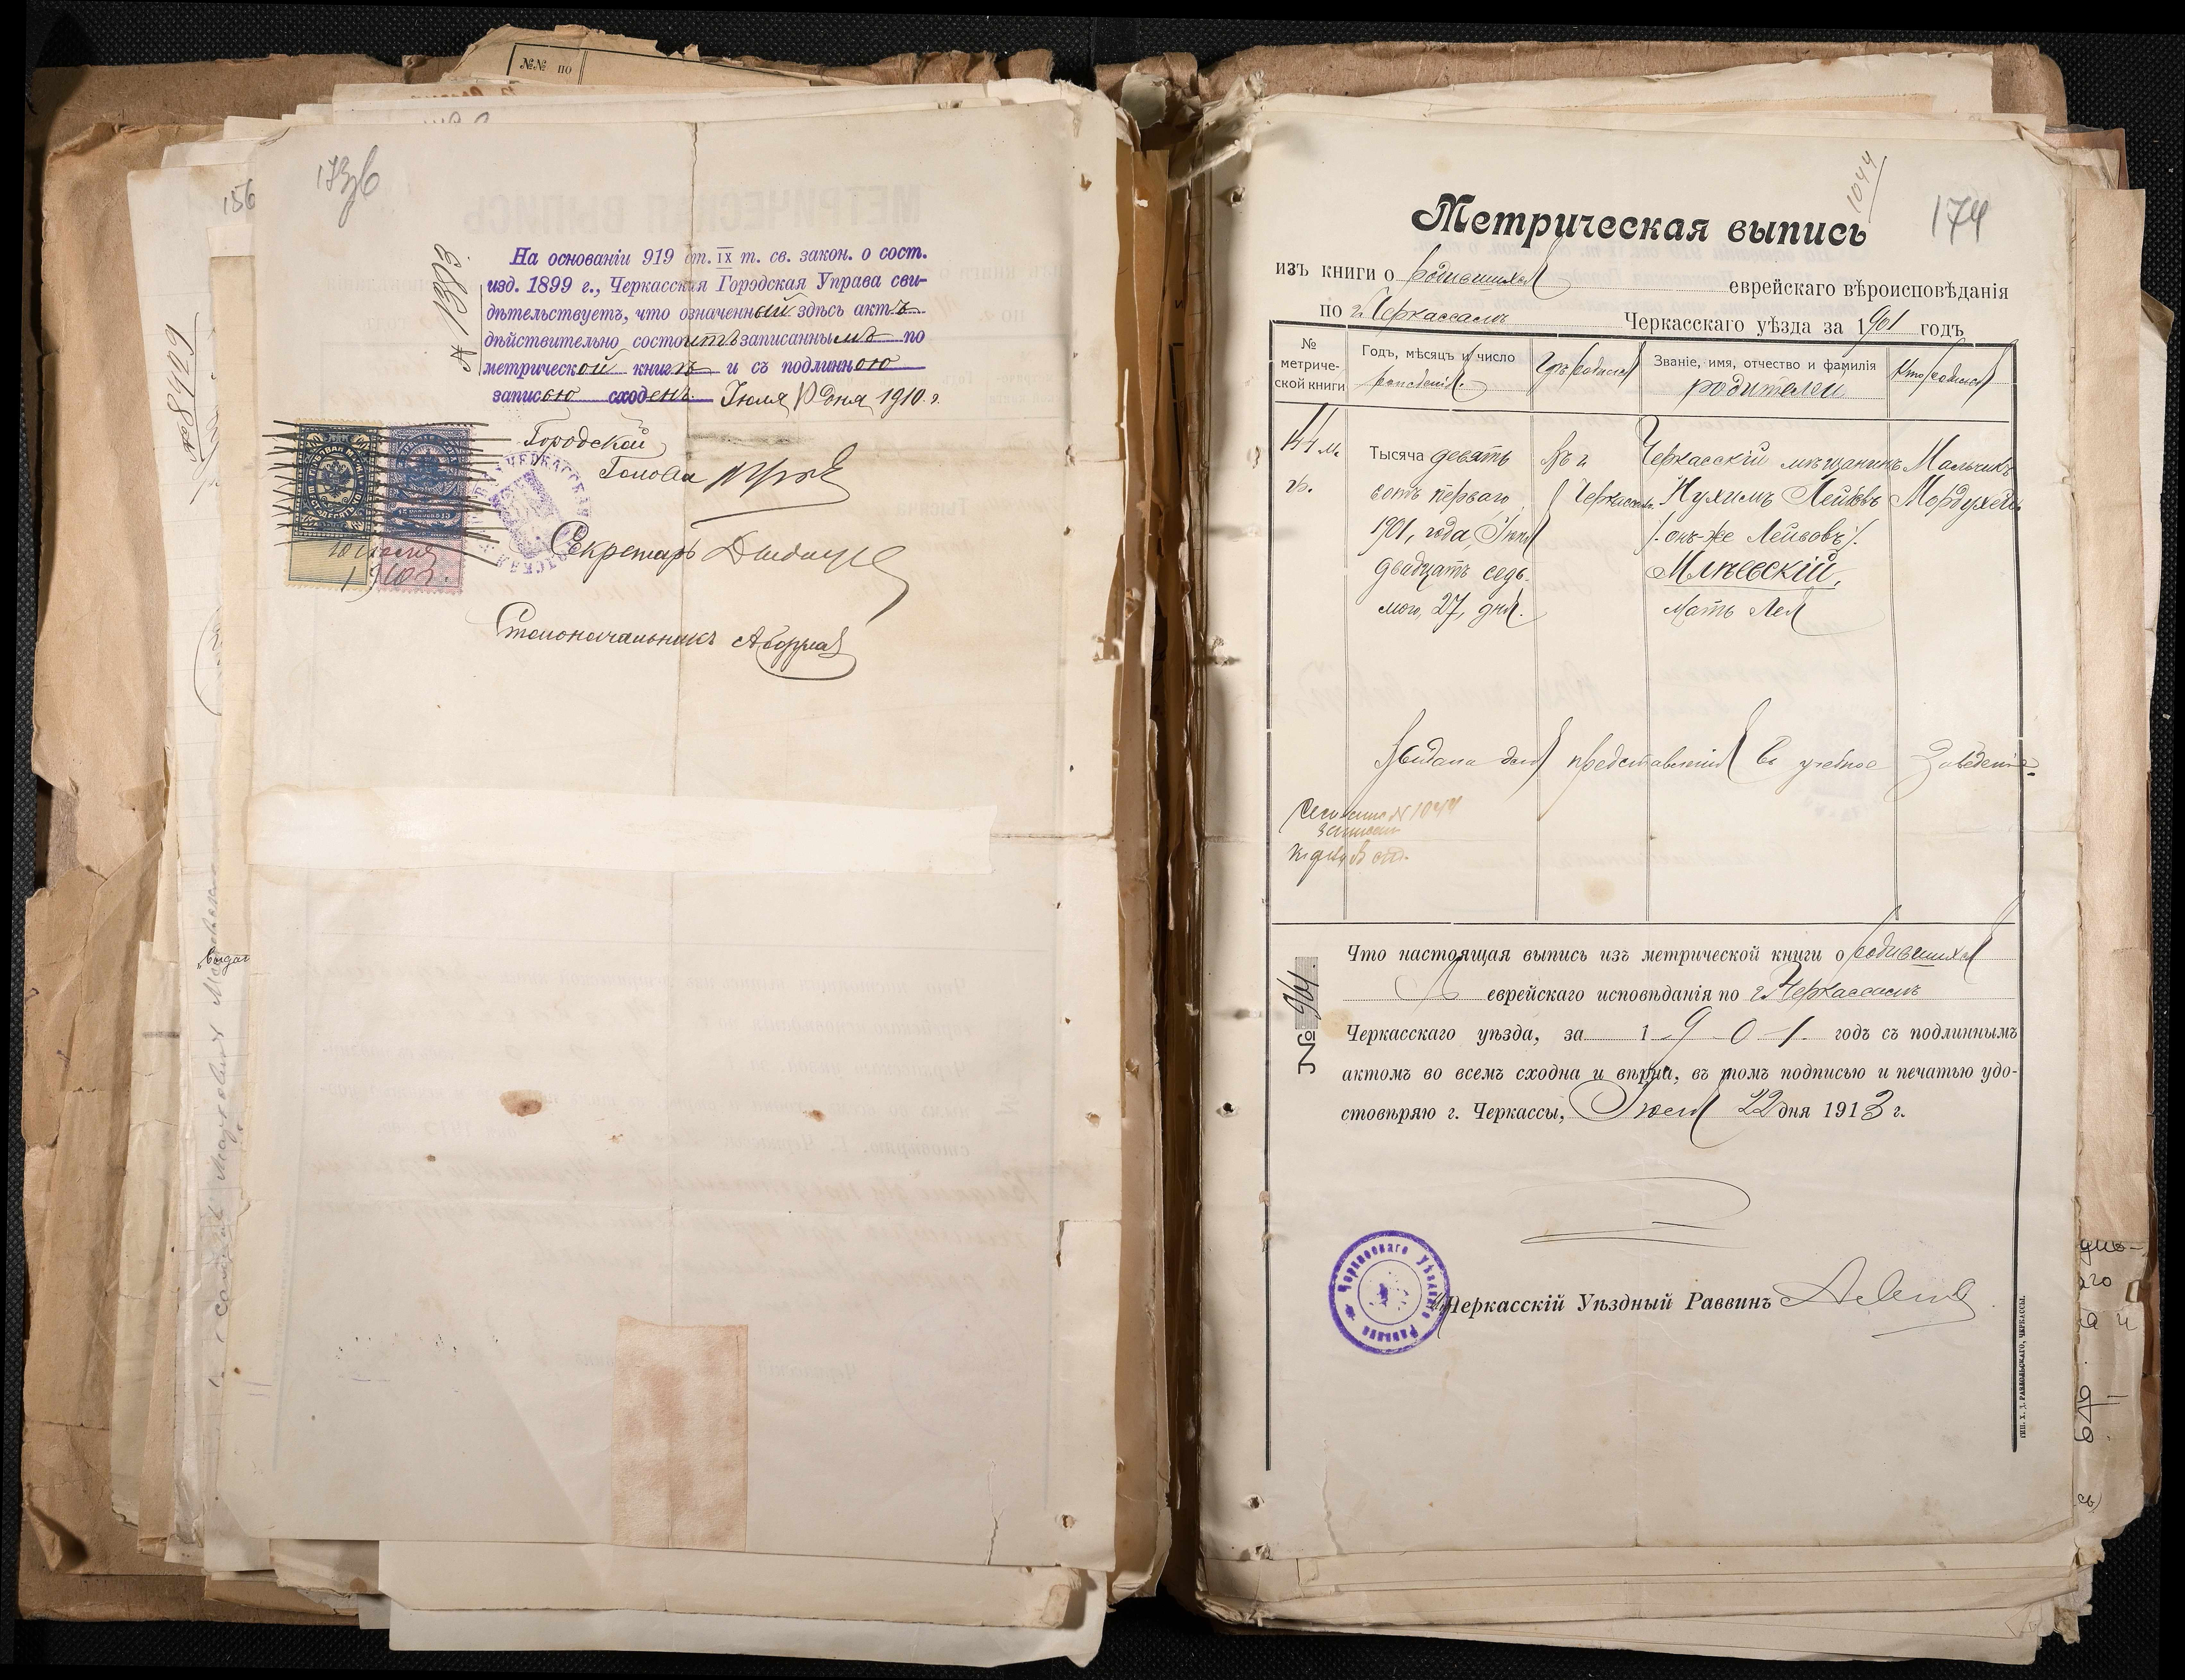 №№ по
156
173об
№ 8929
№ 1393
На основаніи 919 ст. IX т. св. закон. о сост.
изд. 1899 г., Черкасская Городская Управа сви-
дѣтельствуетъ, что означенный здѣсь актъ
дѣйствительно состоитъ записаннымъ по
метрической книгѣ и съ подлинною
записью сходенъ. Іюля 10 дня 1910 г.
Городской
Голова
Секретарь
10 іюля
1910 г.
Столоначальникъ
выдат
1044
174
Метрическая выпись
изъ книги о родившихся еврейскаго вѣроисповѣданія
по г. Черкассамъ Черкасскаго уѣзда за 1901 годъ
№ метриче-ской книги
Годъ, мѣсяцъ и число рожденія.
Гдѣ родился
Званіе, имя, отчество и фамилія родителей
Кто родился
144 м.
Тысяча девять
сотъ перваго
1901, года, Іюня
двадцать седь-
мого, 27, дня.
Въ г.
Черкассахъ
Черкасскій мѣщанинъ
Нухимъ Лейбовъ
/. онъ-же Лейвовъ /.
Млѣевскій,
Мать Лея
Мальчикъ
Мордухай
Выдана для представленія въ учебное заведеніе.
№ 1044
№ 964.
Что настоящая выпись изъ метрической книги о родившихся
еврейскаго исповѣданія по г. Черкассамъ
Черкасскаго уѣзда, за 1901 годъ съ подлиннымъ
актомъ во всемъ сходна и вѣрна, въ томъ подписью и печатью удо-
стовѣряю г. Черкассы, Іюля 22 дня 1913 г.
Черкасскаго Уѣзднаго Раввина
Черкасскій Уѣздный Раввинъ
ТИП. Х. Д. РАВДОЛЬСКАГО, ЧЕРКАССЫ.